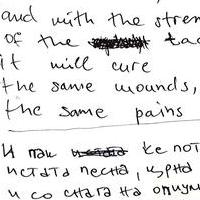 and with the stren
of the tac
it will cure
the same wounds,
the same pains
и пак ќе пот
истата песна, црна
и со снага на опиум